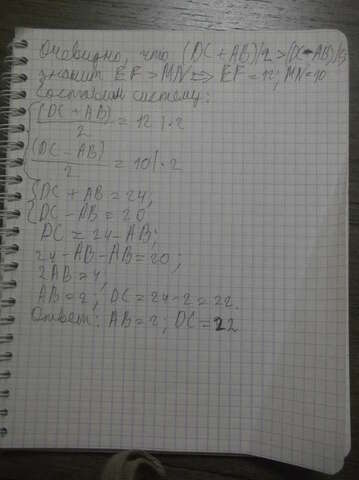 Очевидно, что (DC+AB)/2 > (DC-AB)/2
значит EF > MN ⇔ EF = 12; MN=10
Составим систему:
(DC + AB)/2 = 12 |·2
(DC - AB)/2 = 10 |·2
DC + AB = 24,
DC - AB = 20
DC = 24 - AB;
24 - AB - AB = 20;
2AB = 4;
AB = 2; DC = 24 - 2 = 22.
Ответ: AB = 2; DC = 22